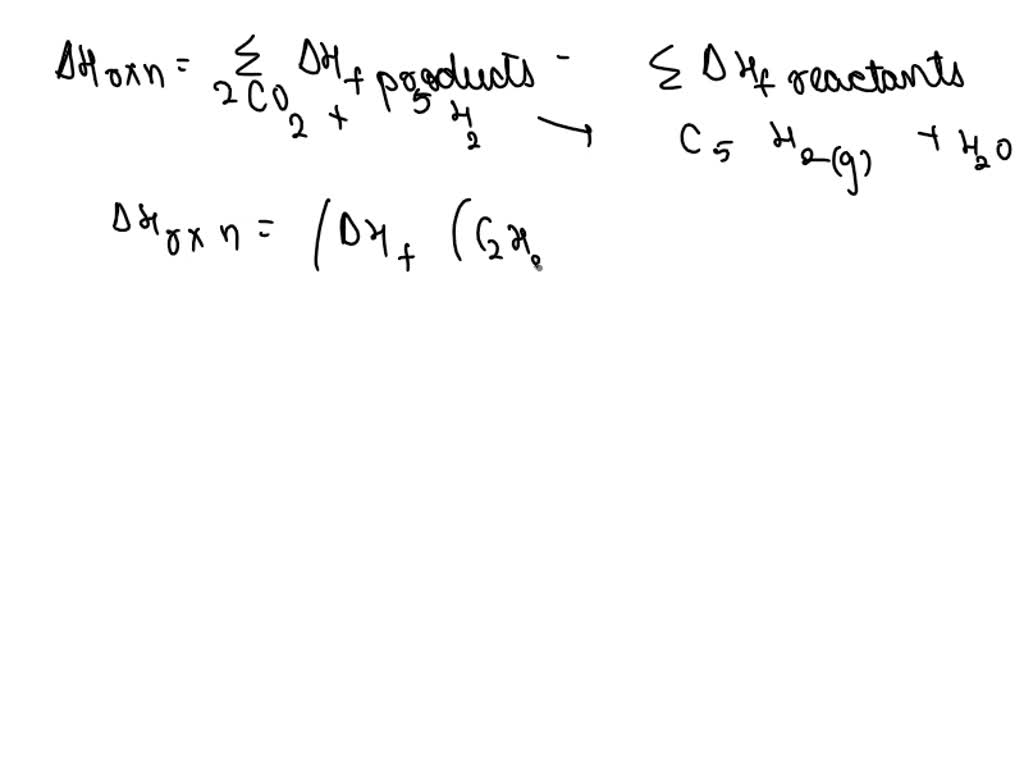 ΔH rxn = Σ ΔHf products - Σ ΔHf reactants
2CO2 + 5H2 → C5 H2(g) + H2O
ΔH rxn = (ΔHf (C2H